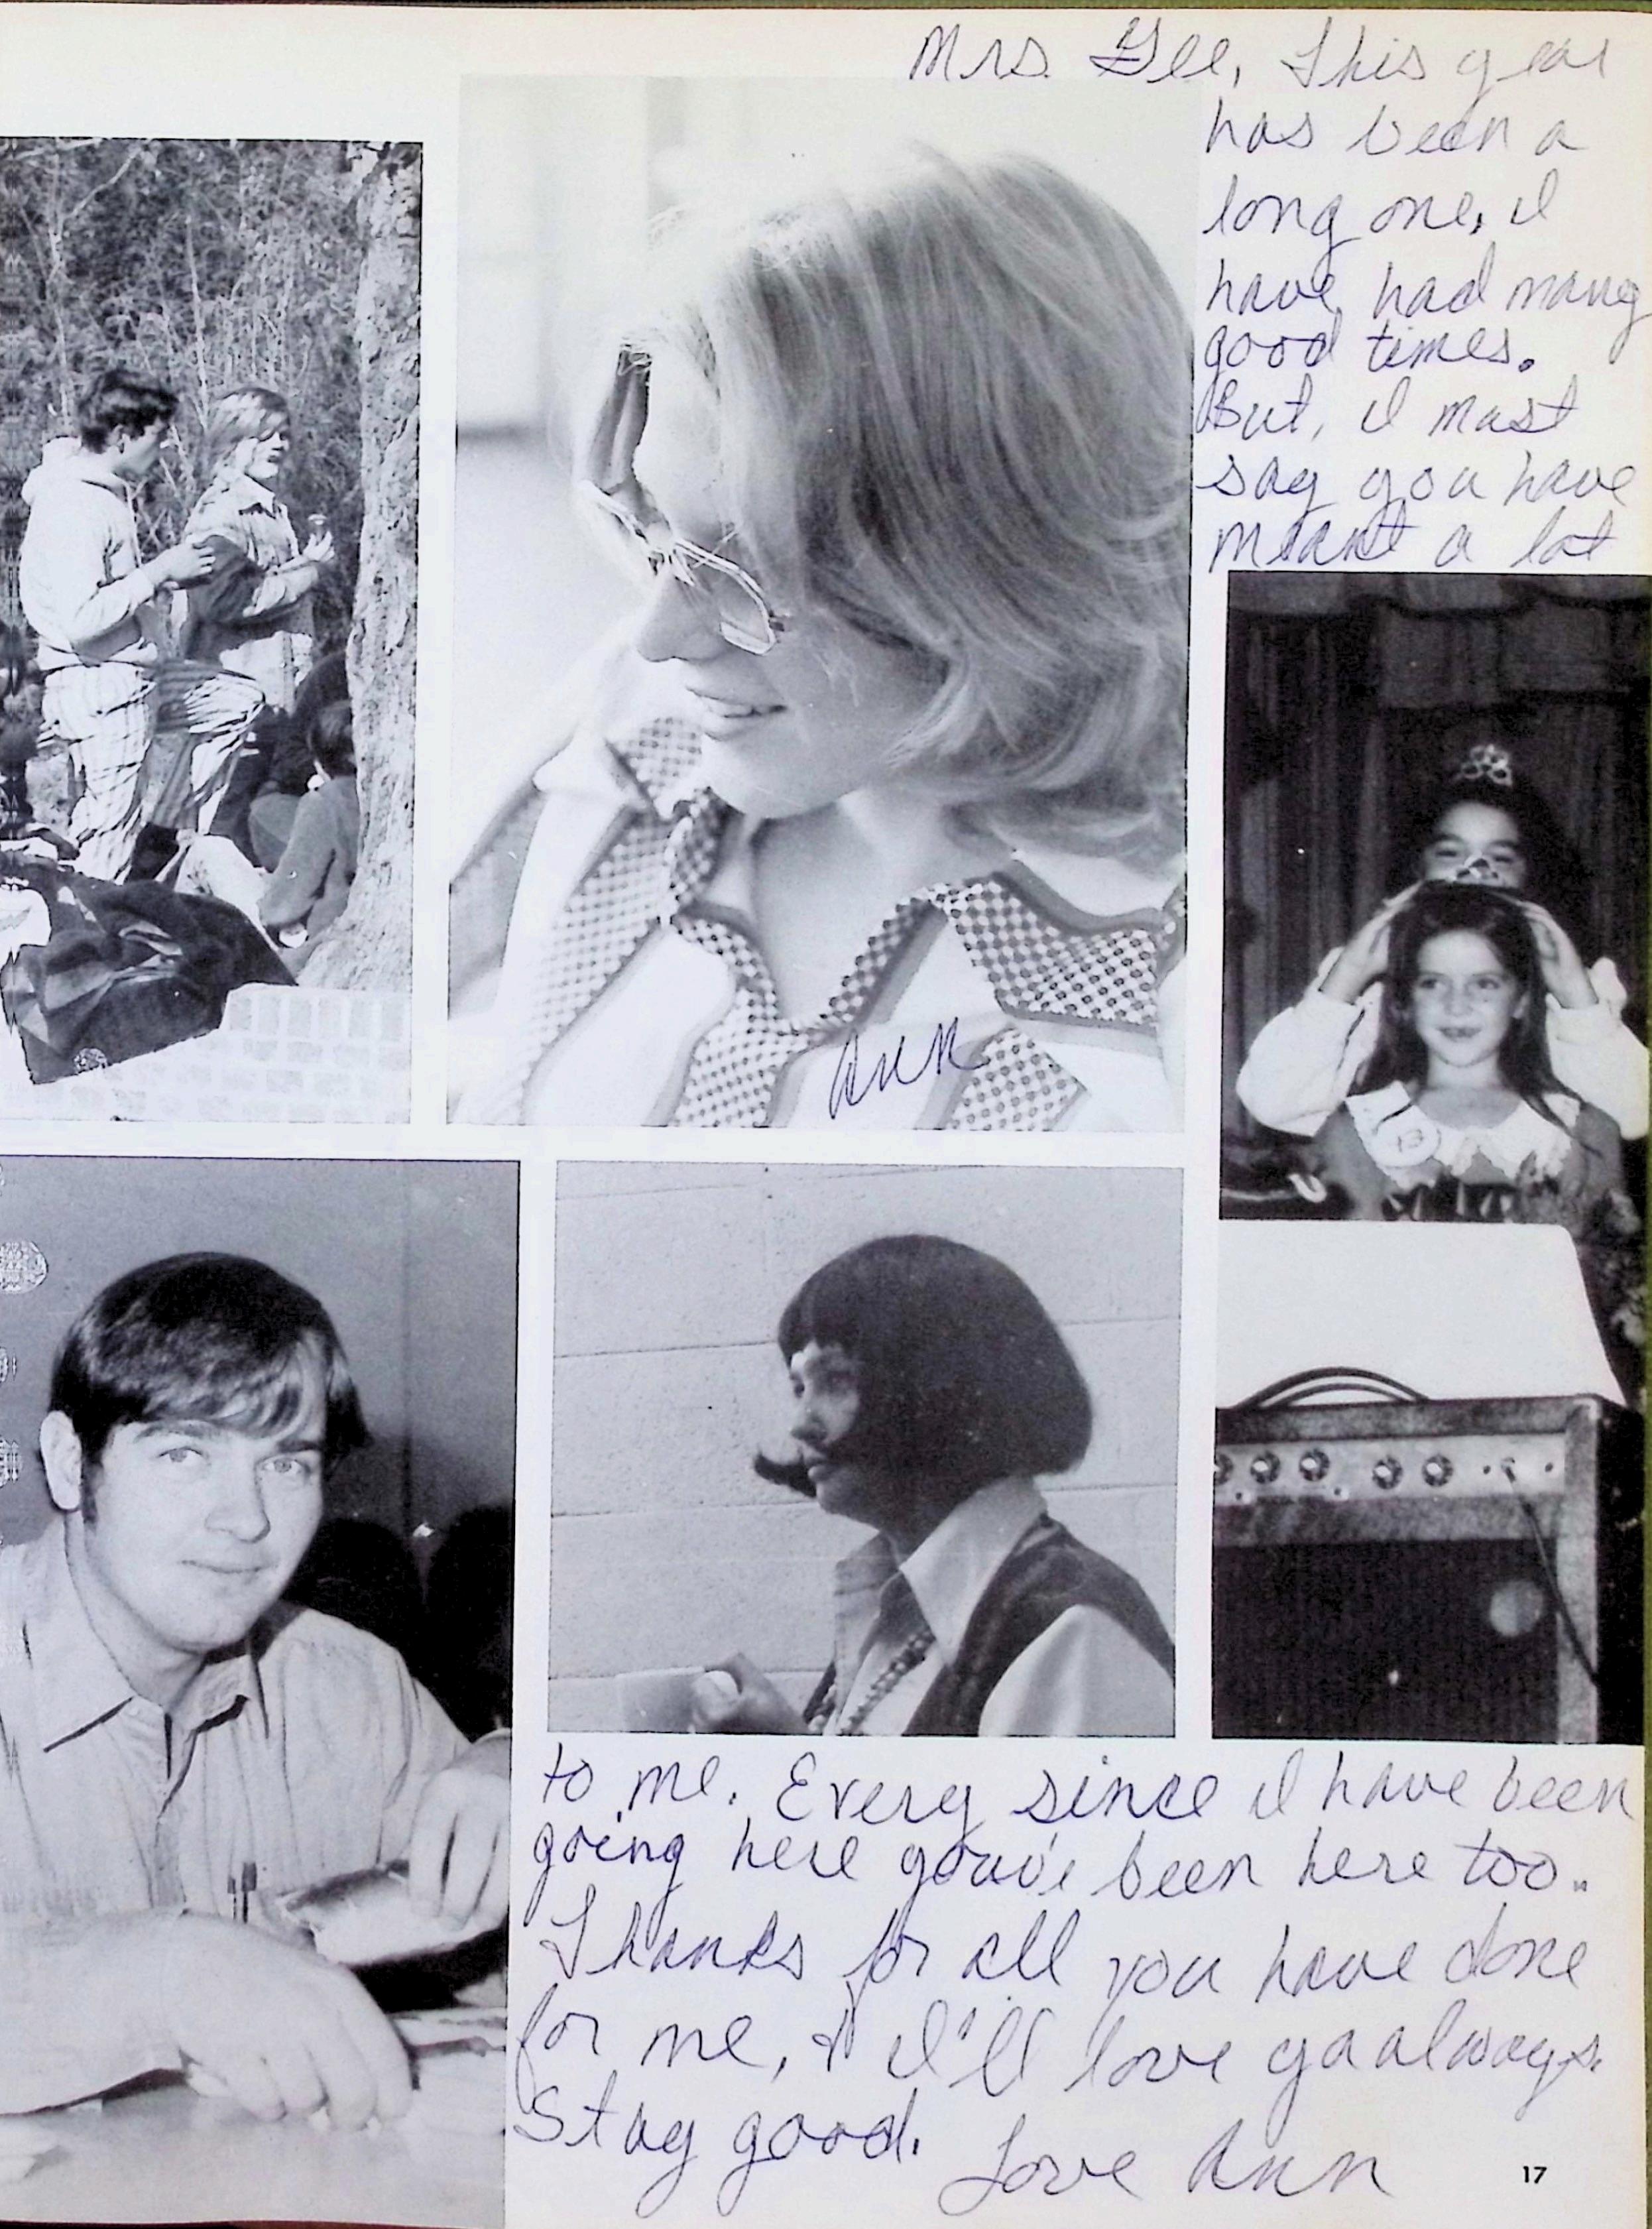 Mrs. Gee, This year
has been a
long one, I
have had many
good times.
But, I must
say you have
meant a lot
13
Ann
to me. Every since I have been
going here youv'e been here too.
Thanks for all you have done
for me, & I'll love ya always.
Stay good. Love Ann
17